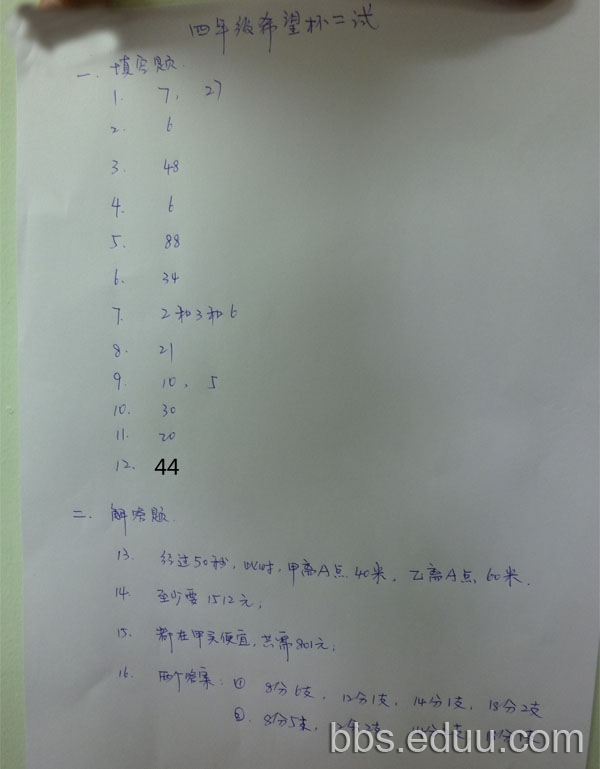 四年级希望杯二试
一. 填空题.
1. 7, 27
2. 6
3. 48
4. 6
5. 88
6. 34
7. 2和3和6
8. 21
9. 10, 5
10. 30
11. 20
12. 44
二. 解答题.
13. 经过50秒, 此时, 甲离A点 40米, 乙离A点 60米.
14. 至少要 1512元.
15. 都在甲买便宜, 共需801元.
16. 两个答案: ① 8分6支, 12分1支, 14分1支, 18分2支
② 8分5支,
bbs.eduu.com